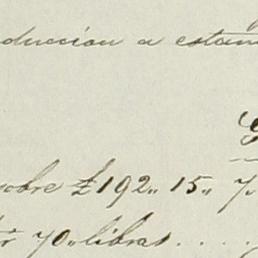 duccion a estam
sobre £192,, 15,, 7.
70,, libras. . . .